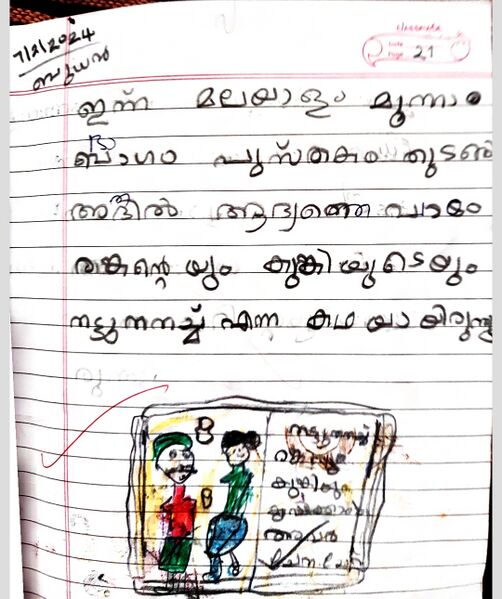 7/2/2024
ബുധൻ
classmate
Date
Page 21
ഇന്ന് മലയാളം മൂന്നാം
ഭാഗം പുസ്തകം തുടങ്ങി
അതിൽ ആദ്യത്തെ പാഠം
രങ്കന്റെയും കുങ്കിയുടെയും
നട്ടുനനച്ച് എന്ന കഥയായിരുന്നു
നട്ടുനനച്ച്